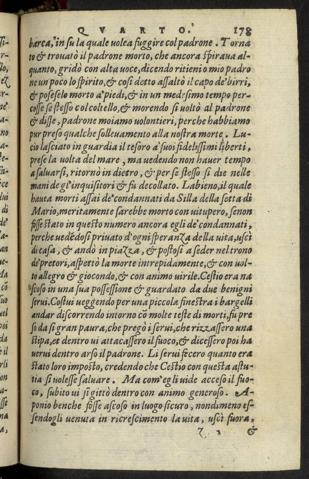 QVARTO. 178
barca, in su la quale volea fuggire col padrone. Torna
to & trouatò il padrone morto, che ancora spiraua al-
quanto, gridò con alta uoce, dicendo ritieni o mio padro
ne un poco lo spirito, & cosi detto assaltò il capo de' birri,
& poseselo morto a' piedi, & in un medesimo tempo per-
cosse se stesso col coltello, & morendo si voltò al padrone
& disse, padrone moiamo volontieri, perche habbiamo
pur preso qualche solleuamento alla nostra morte. Lu-
cio lasciato in guardia il tesoro a' suoi fidelissimi liberti,
prese la volta del mare, ma uedendo non hauer tempo
a saluarsi, ritornò in dietro, & per se stesso si die nelle
mani de gl'inquisitori & fu decollato. Labieno, il quale
hauta morti assai de' condannati da Silla della setta di
Mario, meritamente sarebbe morto con uitupero, se non
fosse stato in questo numero ancora egli de' condennati,
perche uedēdosi priuato d'ogni speranza della vita, uscì
di casa, & andò in piazza, & postosi a seder nel trono
de' pretori, aspettò la morte intrepidamente, & con uol-
to allegro & giocondo, & con animo uirile. Cestio era na
scoso in una sua possessione & guardato da due benigni
serui. Costui ueggendo per una piccola finestra i bargelli
andar discorrendo intorno cō molte teste di morti, fu pre
so da si gran paura, che pregò i serui, che rizzassero una
stipa, et dentro ui attaccassero il fuoco, & dicessero poi ha
uerui dentro arso il padrone. Li serui fecero quanto era
stato loro imposto, credendo che Cestio con questa astu-
tia si uolesse saluare. Ma com'egli uide acceso il fuo-
co, subito ui si gittò dentro con animo generoso. A-
ponio benche fosse ascoso in luogo sicuro, nondimeno es-
sendogli uenuta in ricrescimento la vita, uscì fuora,
&